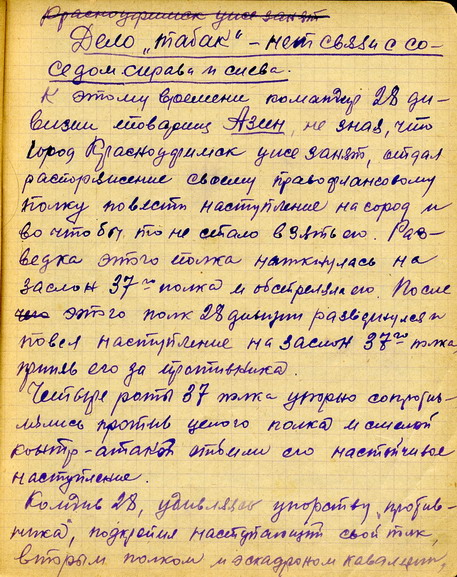 Красноуфимск уже занят
Дело „табак“ – нет связи с со-
седом справа и слева.
К этому времени командир 28 ди-
визии товарищ Азин, не зная, что
город Красноуфимск уже занят, отдал
распоряжение своему правофланговому
полку повести наступление на город и
во что бы то не стало взять его. Раз-
ведка этого полка наткнулась на
заслон 37го полка и обстреляла его. После
этого полк 28 дивизии развернулся и
повел наступление на заслон 37го полка,
приняв его за противника.
Четыре роты 37 полка упорно сопротив-
лялись против целого полка и смелой
контр-атакой отбили его настойчивое
наступление.
Комдив 28, удивляясь упорству „против-
ника“, подкрепил наступающий свой полк,
вторым полком и эскадроном кавалерии,